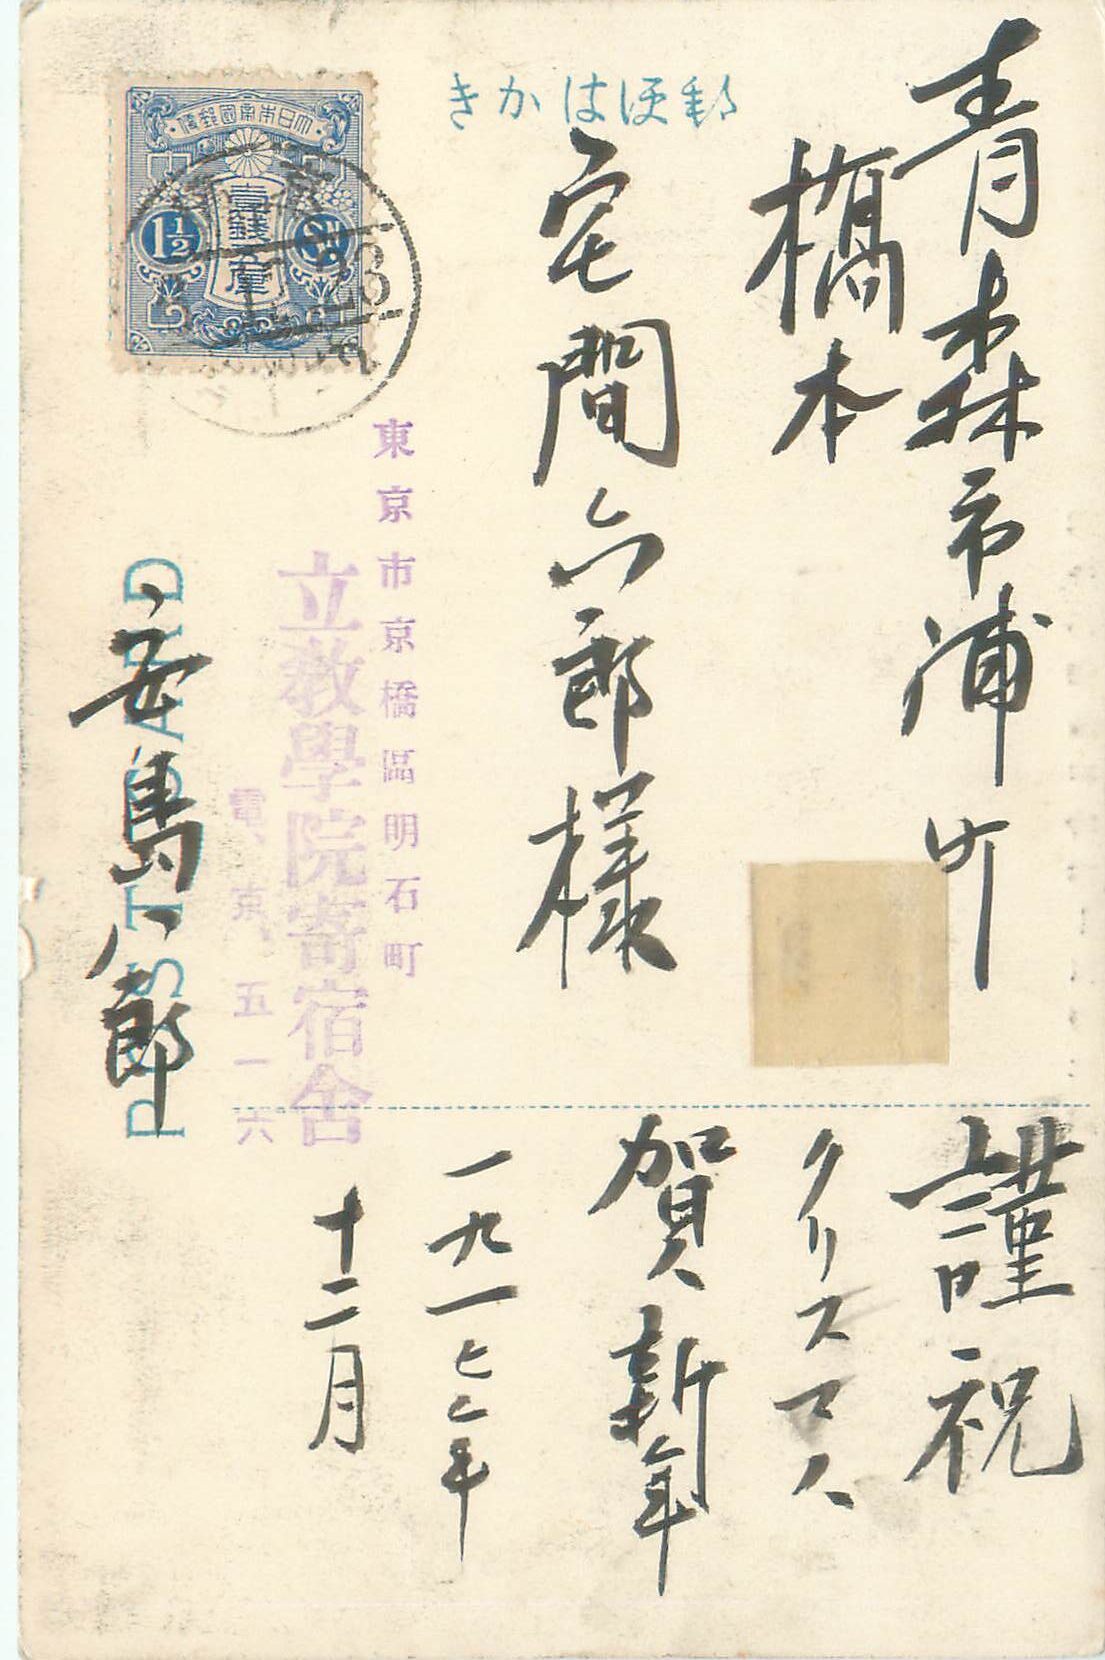 郵便はかき
青森市浦町
橋本
宅間六郎様
大日本帝國郵便
壹銭五厘
1½
Sn
23
東京市京橋區明石町
立教學院寄宿舍
電、京、五一六
安島八郎
POST CARD
謹祝
クリスマス
賀新年
一九一七年
十二月